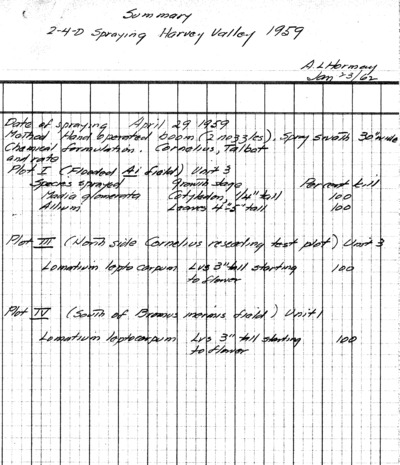 Summary
2-4-D Spraying Harvey Valley 1959
A L Hormay
Jan 23/62
Date of spraying April 29 1959
Method Hand operated boom (2 nozzles). Spray swath 30" wide
Chemical formulation. Cornelius, Talbot
and rate
Plot I (Flooded Ai field) Unit 3
Species sprayed Growth stage Percent kill
Madia glomerata Cotyledon, 1/4" tall 100
Allium Leaves 4"-5" tall 100
Plot III (North side Cornelius reseeding test plot) Unit 3
Lomatium leptocarpum Lvs 3" tall starting 100
to flower
Plot IV (South of Bromus inermus field) Unit 1
Lomatium leptocarpum Lvs 3" tall starting 100
to flower